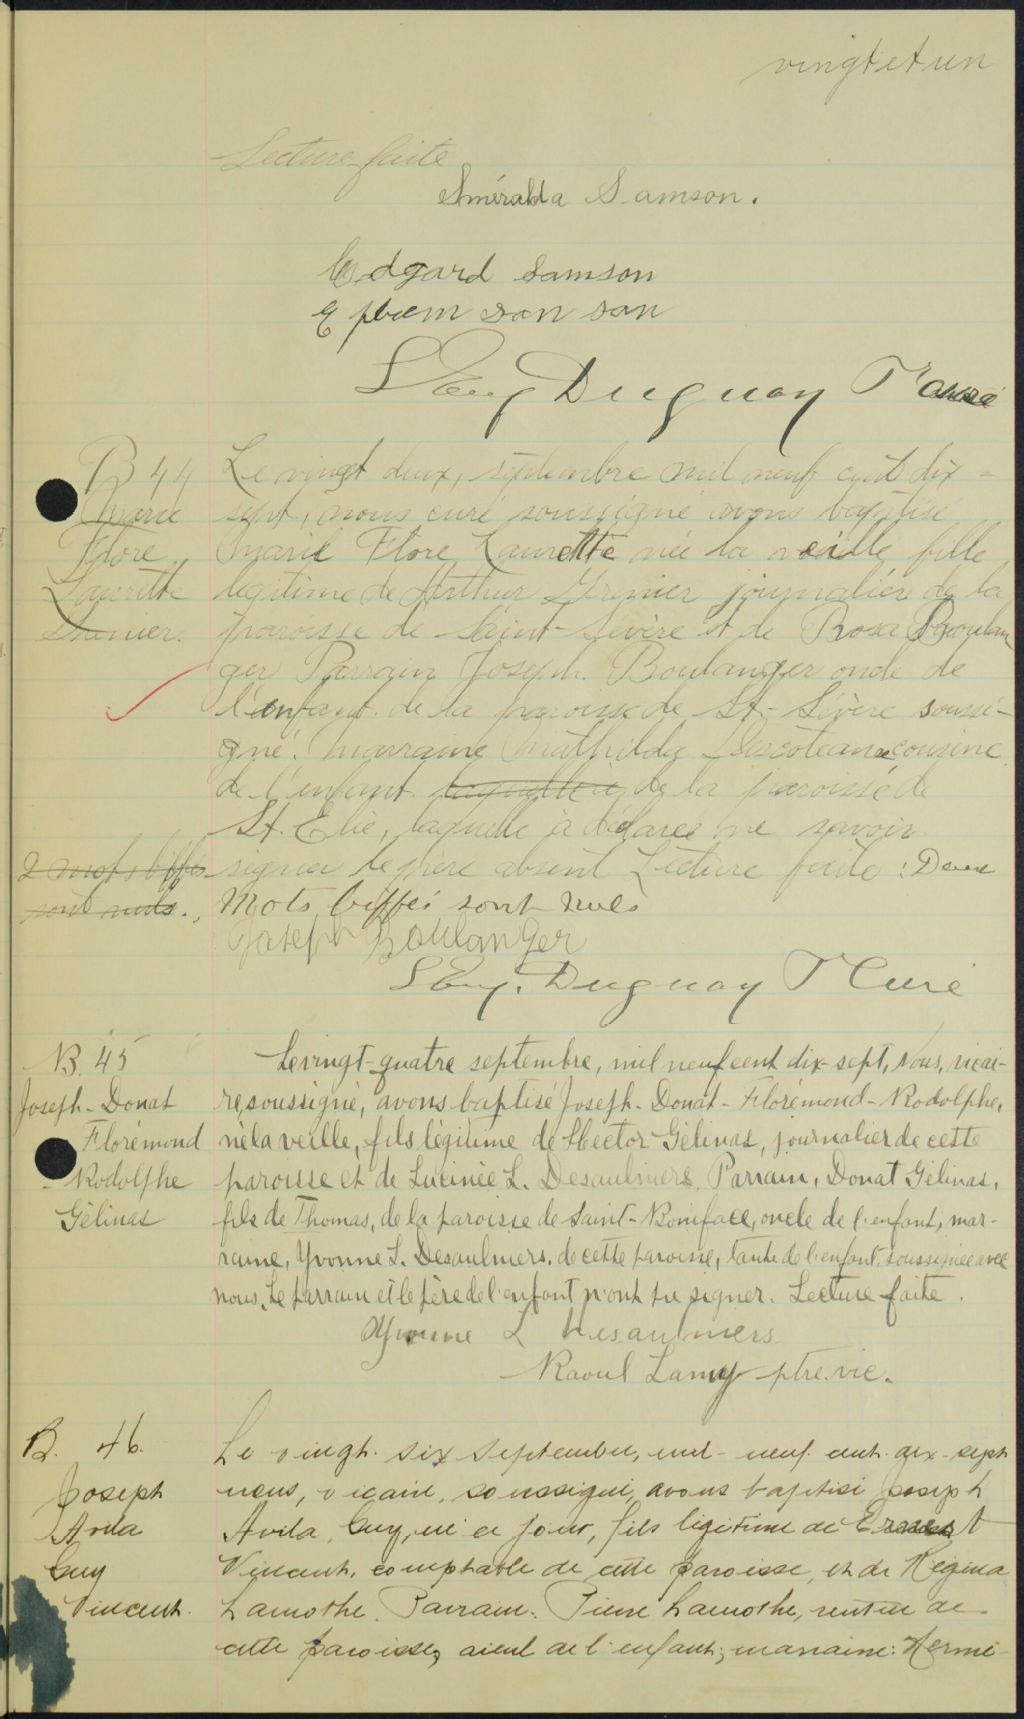 vingt et un
Lecture faite
Sméralda Samson.
Edgard Samson
Ephrem San san
Duguay Ptre curé
B 44
Marie
Flore
Laurette
Grenier.
Le vingt deux, septembre mil neuf cent dix-
sept, nous curé soussigné avons baptisé
Marie Flore Laurette née la veille, fille
légitime de Arthur Grenier journalier de la
paroisse de Saint-Sévère et de Rosa Boulan
ger Parrain Joseph Boulanger oncle de
l'enfant de la paroisse de St-Sévère soussi-
gné. Marraine Mathilda cousine
de l'enfant de la paroisse de
St. Elie, laquelle a déclaré ne savoir
signer le père absent Lecture faite : Deux
2 mots biffés
sont nuls.
Mots biffés sont nuls
Joseph Boulanger
Duguay Ptre Curé
B. 45
Joseph-Donat
Florémond
-Rodolphe
Gélinas
Le vingt-quatre septembre, mil neuf cent dix-sept, Nous, vicai-
re, soussigné, avons baptisé Joseph-Donat-Florémond-Rodolphe,
né la veille, fils légitime de Hector Gélinas, journalier de cette
paroisse et de Lucinée L. Desaulniers. Parrain, Donat Gélinas,
fils de Thomas, de la paroisse de Saint-Boniface, oncle de l'enfant, mar-
raine, Yvonne L. Desaulniers, de cette paroisse, tante de l'enfant, soussignée avec
nous. Le parrain et le père de l'enfant n'ont pu signer. Lecture faite.
Yvonne L Desaulniers
Raoul Lamy ptre. vic.
B. 46.
Joseph
Avila
Guy
Vincent.
Le vingt-six septembre, mil-neuf cent-dix-sept
nous, vicaire, soussigné, avons baptisé Joseph
Avila, Guy, né ce jour, fils légitime de Ernest
Vincent, comptable de cette paroisse, et de Régina
Lamothe. Parrain: Pierre Lamothe, rentier de
cette paroisse, aieul de l'enfant; marraine: Hermé-